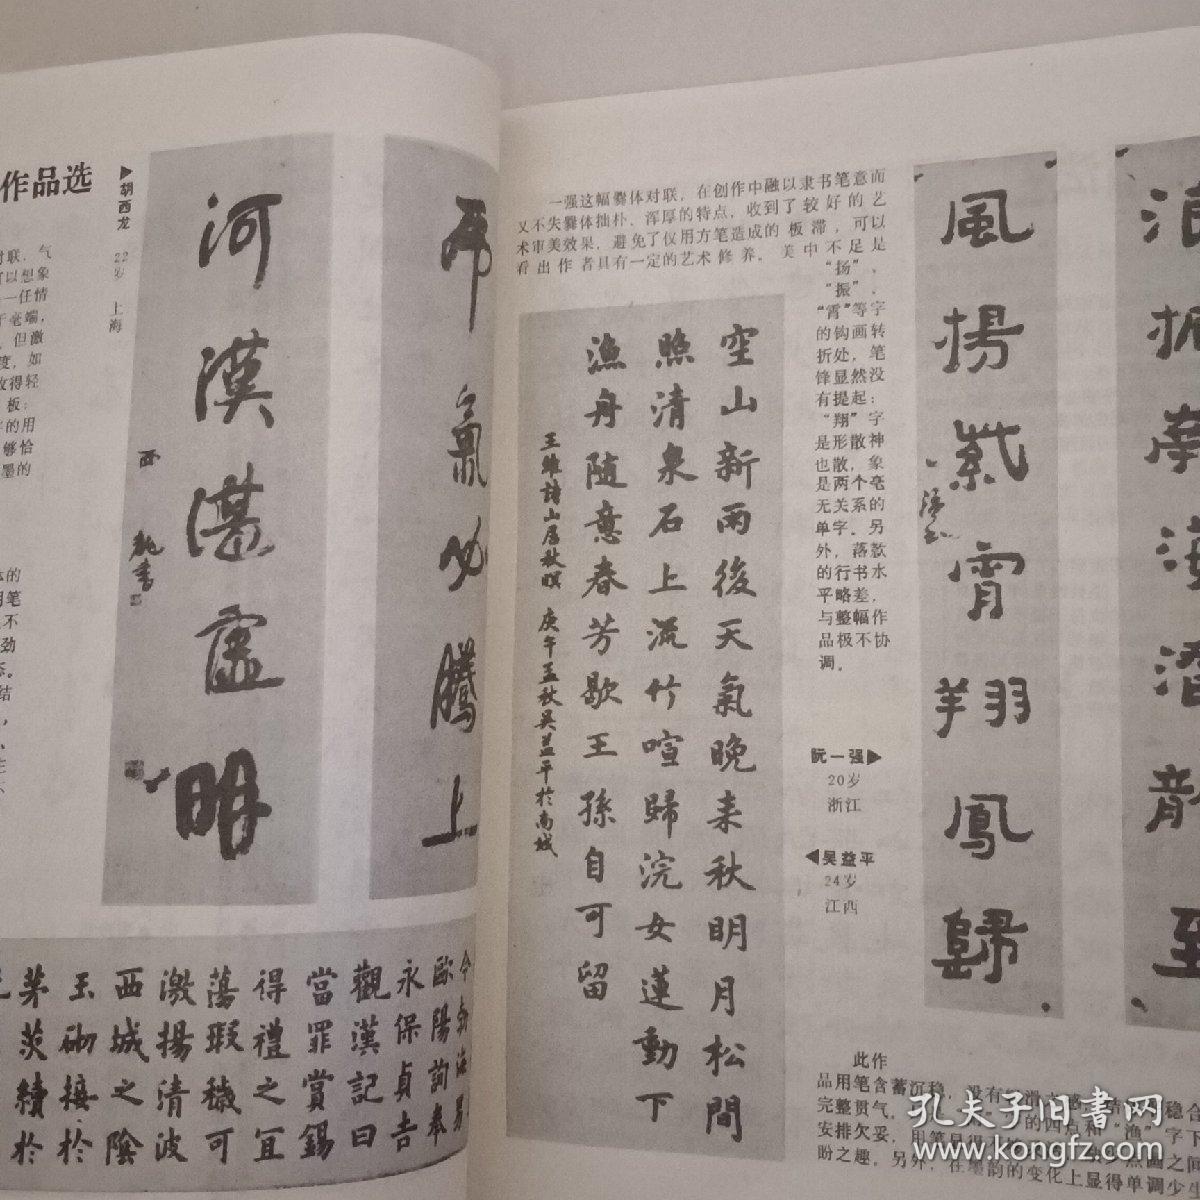 作品选
胡西龙
22岁
上海
对联，气
可以想象
一任情
于毫端，
，但激
度，如
收得轻
板；
字的用
够恰
墨的
河漢湛虚明
西龍書
氣必騰上
一强这幅爨体对联，在创作中融以隶书笔意而
又不失爨体拙朴、浑厚的特点，收到了较好的艺
术审美效果，避免了仅用方笔造成的板滞，可以
看出作者具有一定的艺术修养。美中不足是
“扬”、
“振”、
“霄”等字
的钩画转
折处，笔
锋显然没
有提起；
“翔”字
是形散神
也散，象
是两个毫
无关系的
单字。另
外，落款
的行书水
平略差，
与整幅作
品极不协
调。
空山新雨後天氣晚来秋明月松間
照清泉石上流竹喧歸浣女蓮動下
漁舟随意春芳歇王孫自可留
王維詩山居秋暝 庚午孟秋吴益平於南城
阮一强
20岁
浙江
吴益平
24岁
江西
風揚紫霄翔鳳歸
歐陽詢奉
永保貞吉
觀漢記曰
當罪賞錫
得禮之宜
蕩瑕穢可
激揚清波
西城之陰
玉砌接於
茅茨續於
此作
品用笔含蓄沉稳，没有
完整贯气，的四点和“渔”字下
安排欠妥，用笔显得
盼之趣。另外，在墨韵的变化上显得单调少生
孔夫子旧书网
www.kongfz.com